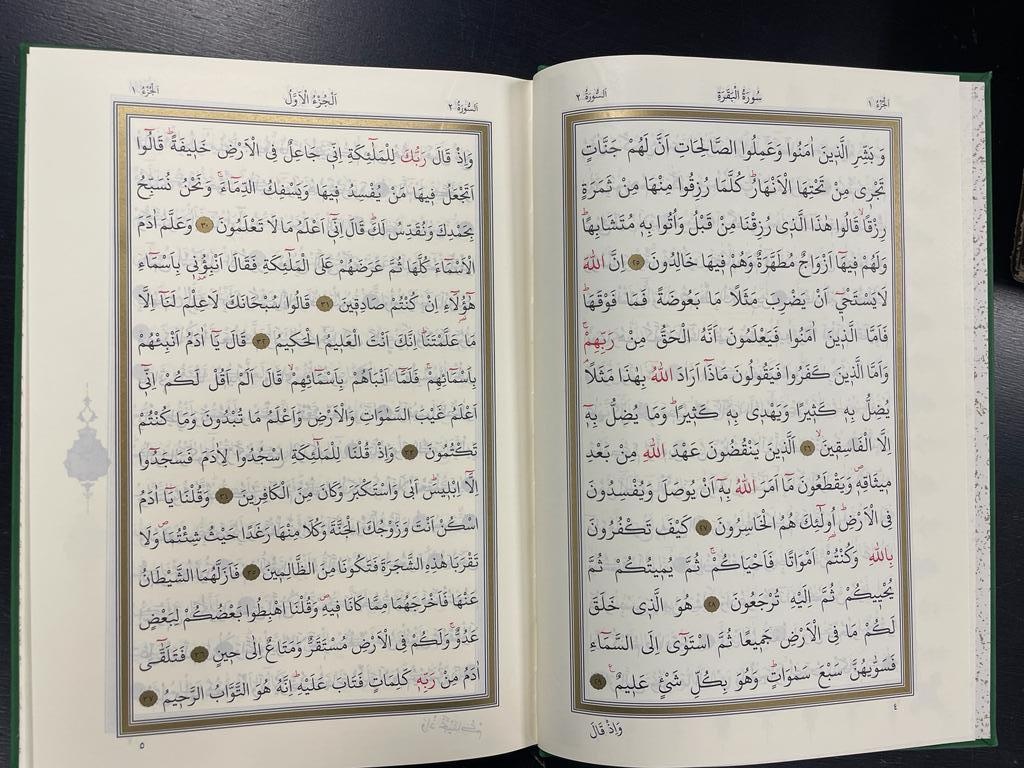 اَلْجُزْءُ ١
سُورَةُ الْبَقَرَةِ
اَلسُّورَةُ ٢
وَ بَشِّرِ الَّذ۪ينَ اٰمَنُوا وَعَمِلُوا الصَّالِحَاتِ اَنَّ لَهُمْ جَنَّاتٍ
تَجْر۪ي مِنْ تَحْتِهَا الْاَنْهَارُۜ كُلَّمَا رُزِقُوا مِنْهَا مِنْ ثَمَرَةٍ
رِزْقًاۙ قَالُوا هٰذَا الَّذ۪ي رُزِقْنَا مِنْ قَبْلُ وَاُتُوا بِه۪ مُتَشَابِهًاۜ
وَلَهُمْ ف۪يهَٓا اَزْوَاجٌ مُطَهَّرَةٌ وَهُمْ ف۪يهَا خَالِدُونَ ٢٥ اِنَّ اللّٰهَ
لَايَسْتَحْي۪ٓ اَنْ يَضْرِبَ مَثَلًا مَا بَعُوضَةً فَمَا فَوْقَهَاۜ
فَاَمَّا الَّذ۪ينَ اٰمَنُوا فَيَعْلَمُونَ اَنَّهُ الْحَقُّ مِنْ رَبِّهِمْۚ
وَاَمَّا الَّذ۪ينَ كَفَرُوا فَيَقُولُونَ مَاذَٓا اَرَادَ اللّٰهُ بِهٰذَا مَثَلًاۢ
يُضِلُّ بِه۪ كَث۪يرًا وَيَهْد۪ي بِه۪ كَث۪يرًاۜ وَمَا يُضِلُّ بِه۪ٓ
اِلَّا الْفَاسِق۪ينَۙ ٢٦ اَلَّذ۪ينَ يَنْقُضُونَ عَهْدَ اللّٰهِ مِنْ بَعْدِ
م۪يثَاقِه۪ۖ وَيَقْطَعُونَ مَٓا اَمَرَ اللّٰهُ بِه۪ٓ اَنْ يُوصَلَ وَيُفْسِدُونَ
فِي الْاَرْضِۜ اُو۬لٰٓئِكَ هُمُ الْخَاسِرُونَ ٢٧ كَيْفَ تَكْفُرُونَ
بِاللّٰهِ وَكُنْتُمْ اَمْوَاتًا فَاَحْيَاكُمْۚ ثُمَّ يُم۪يتُكُمْ ثُمَّ
يُحْي۪يكُمْ ثُمَّ اِلَيْهِ تُرْجَعُونَ ٢٨ هُوَ الَّذ۪ي خَلَقَ
لَكُمْ مَا فِي الْاَرْضِ جَم۪يعًا ثُمَّ اسْتَوٰٓى اِلَى السَّمَٓاءِ
فَسَوّٰيهُنَّ سَبْعَ سَمٰوَاتٍۜ وَهُوَ بِكُلِّ شَيْءٍ عَل۪يمٌ۟ ٢٩
٤
وَاِذْ قَالَ
اَلسُّورَةُ ٢
اَلْجُزْءُ الْاَوَّلُ
اَلْجُزْءُ ١
وَاِذْ قَالَ رَبُّكَ لِلْمَلٰٓئِكَةِ اِنّ۪ي جَاعِلٌ فِي الْاَرْضِ خَل۪يفَةًۜ قَالُٓوا
اَتَجْعَلُ ف۪يهَا مَنْ يُفْسِدُ ف۪يهَا وَيَسْفِكُ الدِّمَٓاءَۚ وَنَحْنُ نُسَبِّحُ
بِحَمْدِكَ وَنُقَدِّسُ لَكَۜ قَالَ اِنّ۪ٓي اَعْلَمُ مَا لَا تَعْلَمُونَ ٣٠ وَعَلَّمَ اٰدَمَ
الْاَسْمَٓاءَ كُلَّهَا ثُمَّ عَرَضَهُمْ عَلَى الْمَلٰٓئِكَةِ فَقَالَ اَنْبِؤُ۫ن۪ي بِاَسْمَٓاءِ
هٰٓؤُ۬لَٓاءِ اِنْ كُنْتُمْ صَادِق۪ينَ ٣١ قَالُوا سُبْحَانَكَ لَاعِلْمَ لَنَٓا اِلَّا
مَا عَلَّمْتَنَاۜ اِنَّكَ اَنْتَ الْعَل۪يمُ الْحَك۪يمُ ٣٢ قَالَ يَٓا اٰدَمُ اَنْبِئْهُمْ
بِاَسْمَٓائِهِمْۚ فَلَمَّٓا اَنْبَاَهُمْ بِاَسْمَٓائِهِمْۙ قَالَ اَلَمْ اَقُلْ لَكُمْ اِنّ۪ٓي
اَعْلَمُ غَيْبَ السَّمٰوَاتِ وَالْاَرْضِۙ وَاَعْلَمُ مَا تُبْدُونَ وَمَا كُنْتُمْ
تَكْتُمُونَ ٣٣ وَاِذْ قُلْنَا لِلْمَلٰٓئِكَةِ اسْجُدُوا لِاٰدَمَ فَسَجَدُٓوا
اِلَّٓا اِبْل۪يسَۜ اَبٰى وَاسْتَكْبَرَ وَكَانَ مِنَ الْكَافِر۪ينَ ٣٤ وَقُلْنَا يَٓا اٰدَمُ
اسْكُنْ اَنْتَ وَزَوْجُكَ الْجَنَّةَ وَكُلَا مِنْهَا رَغَدًا حَيْثُ شِئْتُمَاۖ وَلَا
تَقْرَبَا هٰذِهِ الشَّجَرَةَ فَتَكُونَا مِنَ الظَّالِم۪ينَ ٣٥ فَاَزَلَّهُمَا الشَّيْطَانُ
عَنْهَا فَاَخْرَجَهُمَا مِمَّا كَانَا ف۪يهِۖ وَقُلْنَا اهْبِطُوا بَعْضُكُمْ لِبَعْضٍ
عَدُوٌّۚ وَلَكُمْ فِي الْاَرْضِ مُسْتَقَرٌّ وَمَتَاعٌ اِلٰى ح۪ينٍ ٣٦ فَتَلَقّٰٓى
اٰدَمُ مِنْ رَبِّه۪ كَلِمَاتٍ فَتَابَ عَلَيْهِۜ اِنَّهُ هُوَ التَّوَّابُ الرَّح۪يمُ ٣٧
٥